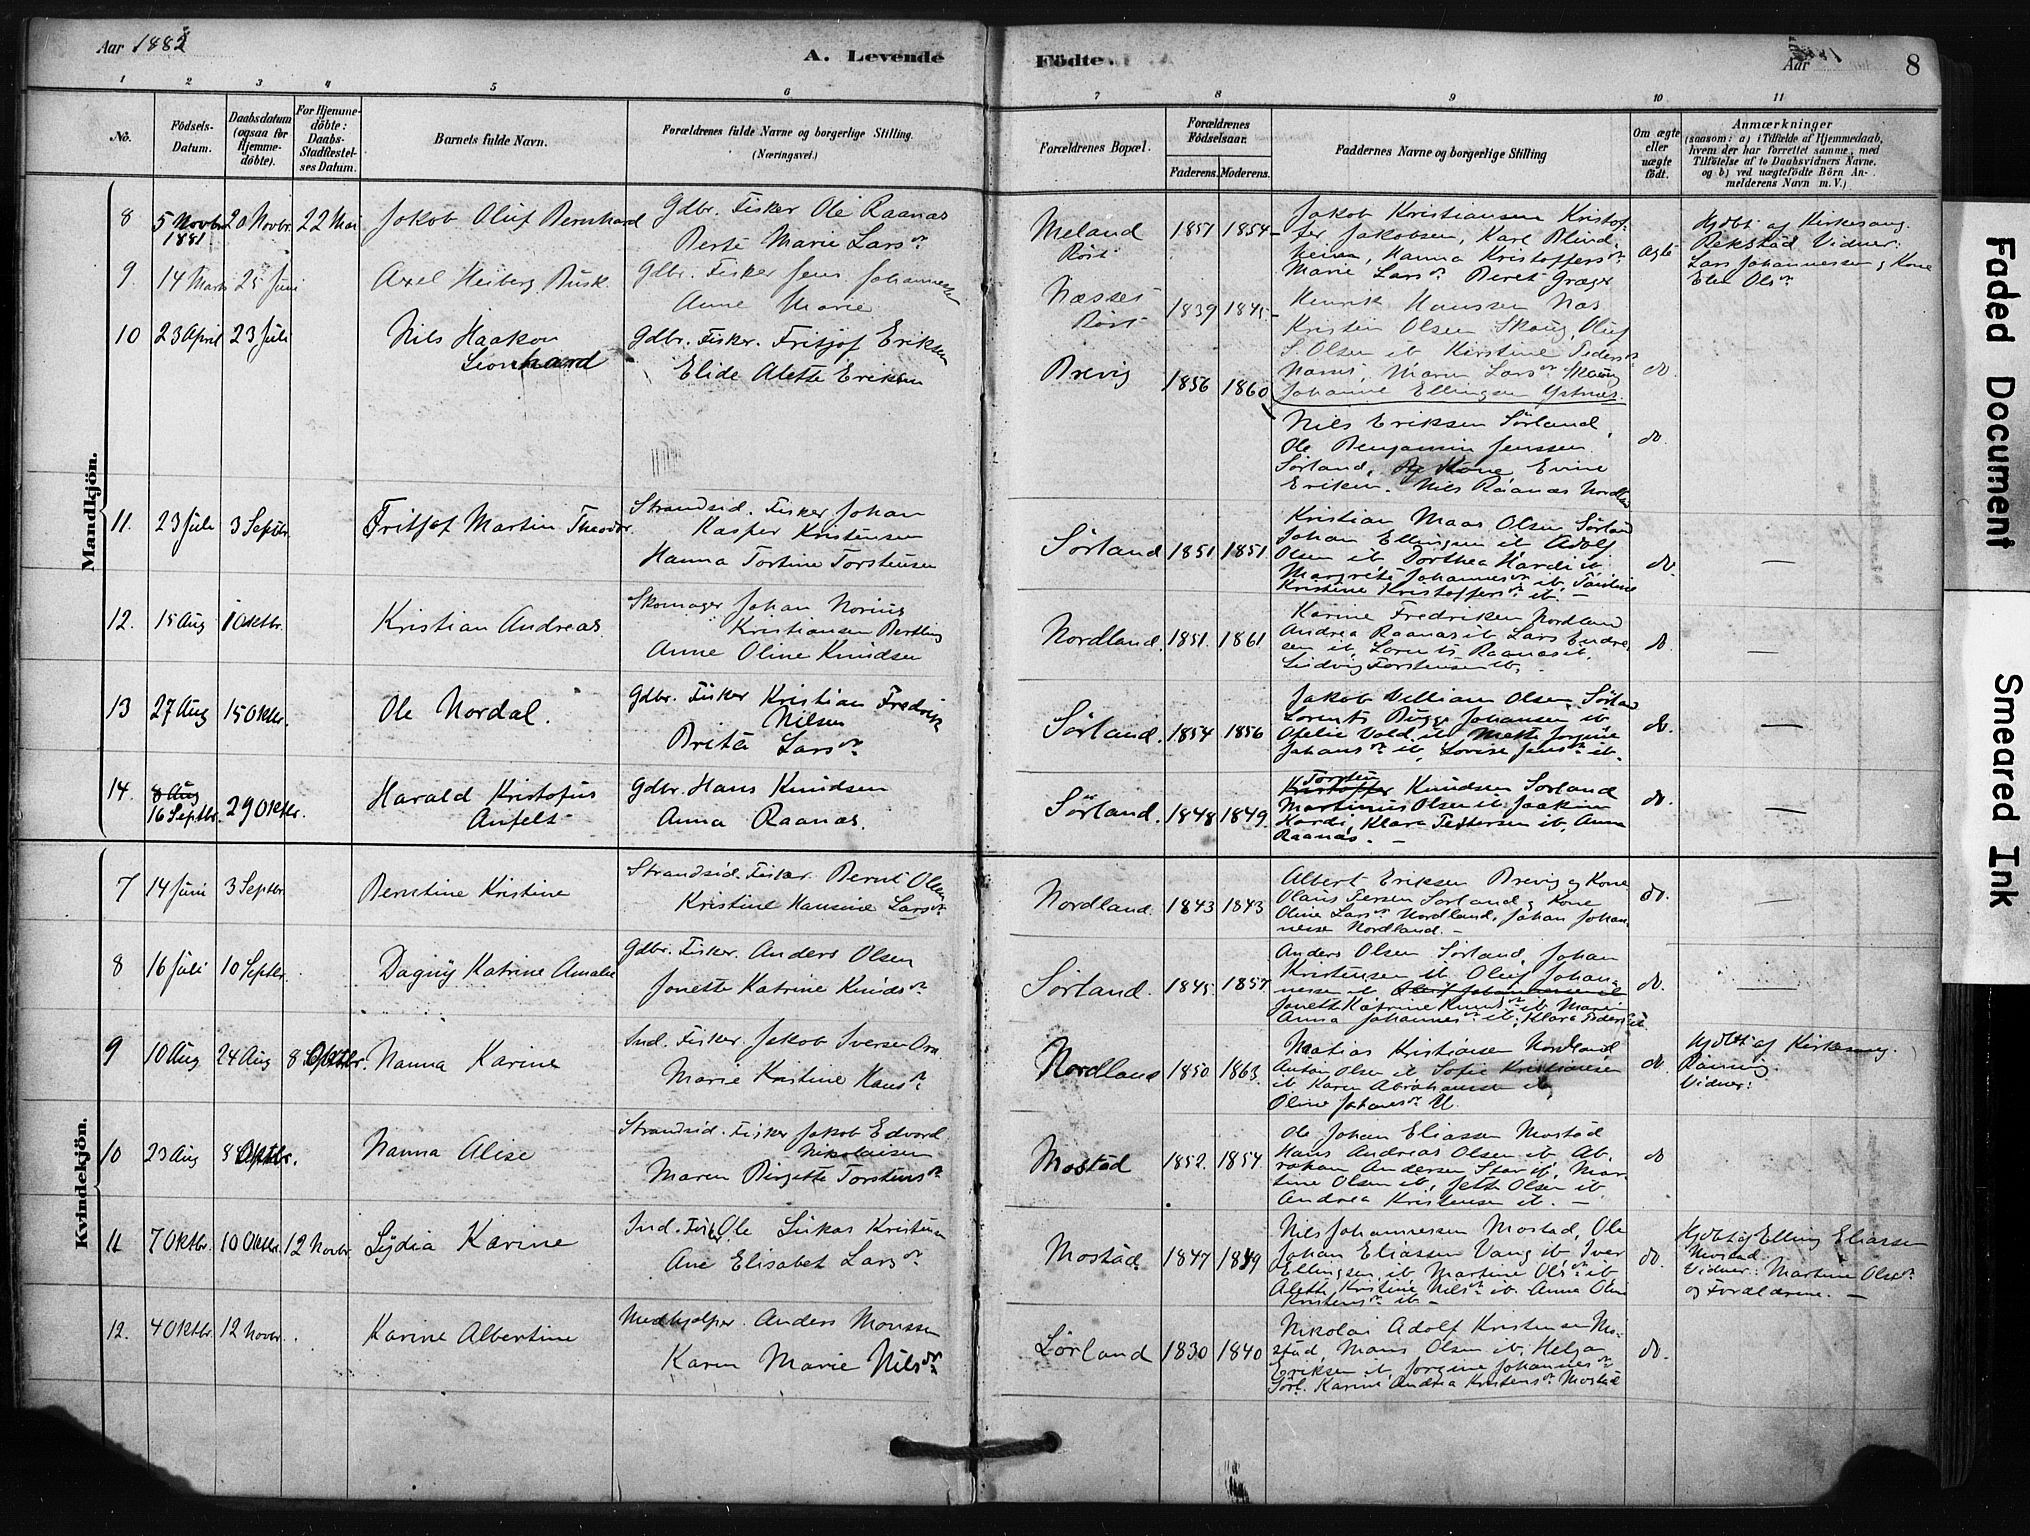 Aar 1882
A. Levende
Födte.
Aar
8
1 2 3 4 5 6
7 8 9 10 11
No.
Födsels-Datum.
Daabsdatum (ogsaa for Hjemme-döbte).
For Hjemme-döbte: Daabs-Stadfæstel-ses Datum.
Barnets fulde Navn.
Forældrenes fulde Navne og borgerlige Stilling.
(Næringsvei.)
Forældrenes Bopæl.
Forældrenes Födselsaar.
Faderens. Moderens.
Faddernes Navne og borgerlige Stilling
Om ægte eller uægte födt.
Anmærkninger
(saasom: a) i Tilfælde af Hjemmedaab,
hvem der har forrettet samme, med
Tilföielse af to Daabsvidners Navne.
og b) ved uægtefödte Börn An-
melderens Navn m. V.)
Mandkjön.
8 5 Novbr 1881 20 Novbr. 22 Mai Jakob Oluf Bernhard
Gdbr. Fisker Ole Raanas
Berte Marie Larsdr
Meland Röst 1857 1854
Jakob Kristiansen Kristof-
fer Jakobsen, Karl Blind-
heim, Hanna Kristoffersdr
Marie Larsdr Beret Græger
Ægte
Hjdbt af Kirkesang.
Rekstad Vidner:
Lars Johannessen og Kone
Elen Olsdr
9. 14 Marts 25 Juni Axel Heiberg Busk
Gdbr. Fisker Jens Johannessen
Anne Marie
Næsset Röst 1839 1845
Henrik Hanssen Næs
Kristin Olsen Skaug, Oluf
S. Olsen ib Kirstine Peders
Marie Larsdr Skaug
Johanne Ellingsen Ystnæs.
do.
10 23 April 23 Juli Nils Haakon
Leonhard
Gdbr. Fisker. Fritjof Eriksen
Elide Alette Eriksen
Brevig 1856 1860
Nils Eriksen Sörland,
Ole Benjamin Jenssen
Sörland, og Kone Evine
Eriksen. Nils Raanæs Nordland
do.
11. 23 Juli 3 Septbr. Fritjof Martin Theodor.
Strandsid. Fisker Johan
Kasper Kristensen
Hanna Tortine Torstensen
Sörland 1851 1851
Kristian Maas Olsen Sörland
Johan Ellingsen ib Adolf
Olsen ib Dorthea Hardi ib
Margrete Johannesdr ib,
Kristine Kristoffersdr ib. —
do. —
12. 15 Aug 1 Oktbr. Kristian Andreas.
Skomager Johan Noring
Kristiansen
Anne Oline Knudsen
Nordland. 1851. 1861
Karine Fredriksen Nordland
Andrea Raanas ib Lars Endre-
sen ib, Lorents Raanæs ib,
Ludvig Torstensen ib.
do. —
13 27 Aug 15 Oktbr. Ole Nordal.
Gdbr. Fisker Kristian Fredrik
Nilsen
Brita Larsdr
Sörland. 1854 1856
Jakob William Olsen, Sörland
Lorents Bugge Johansen ib
Ofelie Vold ib Mette Jorgine
Johansdr ib, Lovise Jensdr ib.
do. —
14. 8 Aug
16 Septbr. 29 Oktbr. Harald Kristofus
Anfelt
Gdbr. Hans Knudsen
Anna Raanas.
Sörland. 1848 1849.
Torsten
Kristoffer Knudsen Sorland
Martinus Olsen ib. Joakim
Hardi, Klara Pedersen ib, Anna
Raanas. —
do. —
Kvindekjön.
7 14 Juni 3 Septbr. Berntine Kristine
Strandsid. Fisker. Bernt Olsen
Kristine Hansine Larsdr
Nordland. 1843 1843
Albert Eriksen Brevig og Kone
Olaus Persen Sorland og Kone
Oline Larsdr Nordland, Johan Johan-
nesse Nordland. —
do. —
8 16 Juli 10 Septbr. Dagny Katrine Amalie
Gdbr. Fisker. Anders Olsen
Jonette Katrine Knudsdr
Sörland. 1845. 1857
Anders Olsen Sörland, Johan
Kristensen ib Oluf Johan-
nesse ib Oluf Johannesse ib
Jonette Katrine Knudsdr ib. Maren
Anna Johannesdr ib; Klara Pedersdr ib
do. —
9 10 Aug 24 Aug 8 Oktbr. Nanna Karine
Ind. Fisker. Jakob Iversen
Marie Kristine Hansdr
Nordland 1850 1863.
Matias Kristiansen Nordland
Anton Olsen ib Sofie Kristiansen
ib Karen Abrahamsen ib
Oline Johansdr ib.
do.
Hjdbt af Kirkesang.
Rönning.
Vidner:
10 23 Aug 8 Oktbr. Nanna Alise
Strandsid. Fisker Jakob Edvard
Nikolaisen
Maren Birgitte Torstensdr
Mostad 1852. 1854.
Ole Johan Eliassen Mostad
Hans Andreas Olsen ib Ab-
raham Andersen Stav ib, Mar-
tine Olsen ib, Jette Olsen ib,
Andrea Kristensen ib. —
do
11 7 Oktbr. 10 Oktbr. 12 Novbr. Lydia Karine
Ind. Fisker Ole Lukas Kristensen
Ane Elisabet Larsdr
Mostad 1847 1849
Nils Johannessen Mostad, Ole
Johan Eliassen Vang ib, Iver
Ellingsen ib Martine Olsdr ib
Alette Kristine Nilsdr ib. Anna Oline
Kristensdr ib —
do.
Hjdbt af Elling Eliassen
Mostad.
Vidner: Martine Olsdr
og Forældrene. —
12. 4 Oktbr. 12 Novbr. Karine Albertine
Medhjælper. Anders Monssen
Karen Marie Nilsdr
Sörland 1830 1840
Nikolai Adolf Kristensen Mo-
stad, Mons Olsen ib, Helga
Eriksen ib, Jorgine Johannesdr
Sörl. Karine Andrea Kristensdr Mostad
do.
Faded Document
Smeared Ink